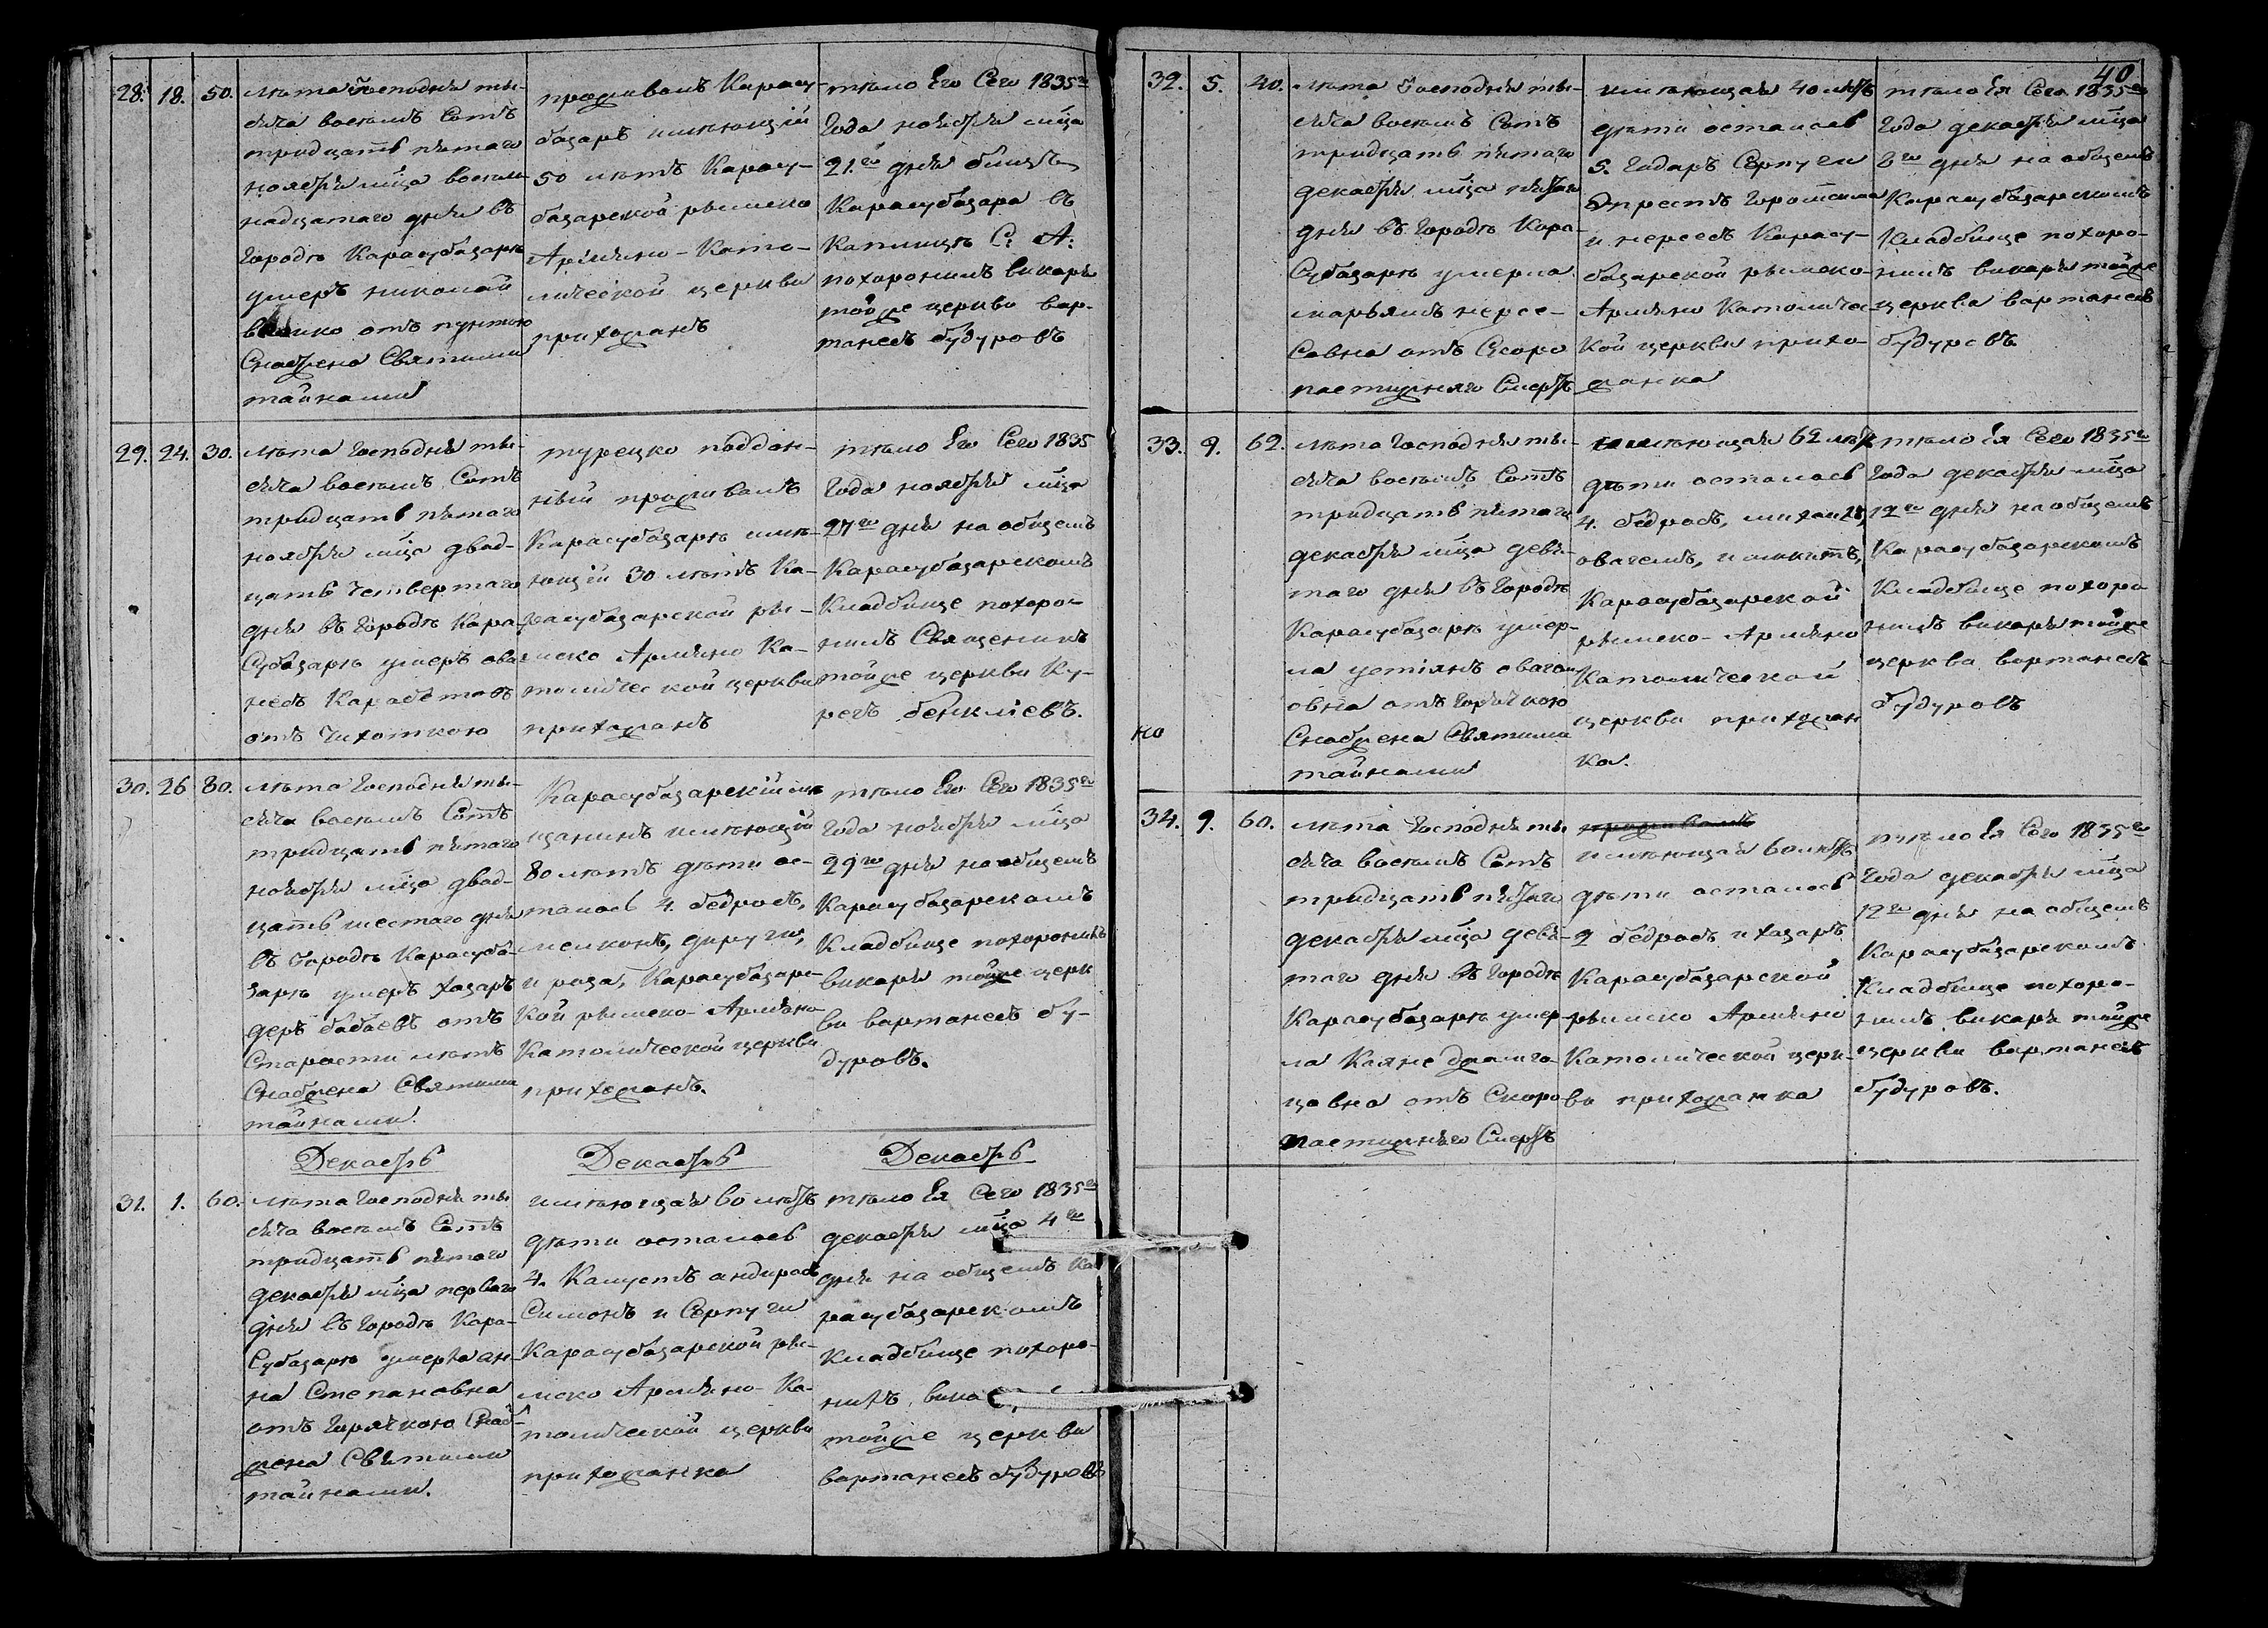 28. 18. 50. лѣта Господня ты-
сяча восемь сотъ
тридцать пятаго
ноября мѣца восем-
надцатаго дня въ
Городѣ Карасубазарѣ
умеръ николай
отъ
Снабжена Святыми
тайнами
проживалъ Карасу-
базаръ имѣющій
50 лѣтъ Карасу-
базарской римско
Армяно-Като-
лической церкви
прихожанъ
тѣло Его Сего 1835го
Года ноября мѣца
21.го дня близъ
Карасубазара въ
Каплицѣ С: А:
похоронилъ викарій
тойже церкви вар-
танесъ будуровъ
29. 24. 30. лѣта Господня ты-
сяча восемь Сотъ
тридцать пятаго
ноября мѣца двад-
цать Четвертаго
дня въ Городѣ Кара-
Субазарѣ умеръ ова
несъ Карабетовъ
отъ Чихоткою
турецко поддан-
ный проживалъ
Карасубазарѣ имѣ-
ющій 30 лѣтъ Ка-
расубазарской ри-
мско Армяно Ка-
толической церкви
прихожанъ
тѣло Его Сего 1835
Года ноября мѣца
27го дня на общемъ
Карасубазарскомъ
Кладбище похоро-
нилъ Священникъ
тойже церкви Ку-
регъ бенклiевъ.
30. 26 80. лѣта Господня ты-
сяча восемь Сотъ
тридцать пятаго
ноября мѣца двад-
цать шестаго дня
въ Городѣ Карасуба-
зарѣ умеръ хазаръ
деръ бабаевъ отъ
Старости лѣтъ
Снабжена Святыми
тайнами.
Карасубазарскій мѣ
щанинъ имѣющій
80 лѣтъ дѣти ос-
талось 4. бедросъ,
мелконъ, дируги,
и роза, Карасубазарс-
кой римско-Армяно
Католической церкви
прихожанъ.
тѣло Его Сего 1835го
Года ноября мѣца
29го дня на общемъ
Карасубазарскомъ
Кладбище похоронилъ
викарій тойже церк
ви вартанесъ бу-
дуровъ.
Декабрь Декабрь Декабрь
31. 1. 60. лѣта Господня ты
сяча восемь Сотъ
тридцать пятаго
декабря мѣца перваго
дня въ Городѣ Кара-
Субазарѣ умерла ан-
на Степановна
отъ Горячкою Снаб-
жена Святыми
тайнами.
имѣющая 60 лѣтъ
дѣти осталось
4. Калустъ андиросъ
Симонъ и Серпуги
Карасубазарской ри-
мско Армяно-Ка-
толической церкви
прихожанка
тѣло Ея Сего 1835го
декабря мѣца 4го
дня на общемъ Ка
расубазарскомъ
Кладбище похоро-
нилъ вика
тойже церкви
вартанесъ будуровъ
40
32. 5. 40. лѣта Господня ты-
сяча восемь Сотъ
тридцать пятаго
декабря мѣца пятаго
дня въ Городѣ Кара-
Субазарѣ умерла
марьямъ нерсе-
совна отъ Скоро
постижнаго Смерть
имѣющая 40 лѣтъ
дѣти осталось
5. Гаспаръ Серпуги
и нерсесъ Карасу-
базарской римско-
Армяно Католичес-
кой церкви прихо-
жанка
тѣло Ея Сего 1835го
Года декабря мѣца
8го дня на общемъ
Карасубазарскомъ
Кладбище похоро-
нилъ викарій тойже
церкви вартанесъ
будуровъ.
но
33. 9. 62. лѣта Господня ты-
сяча восемь Сотъ
тридцать пятаго
декабря мѣца девя-
таго дня въ Городѣ
Карасубазарѣ умер-
ла устіянъ овагом
овна отъ Горячкою
Снабжена Святыми
тайнами
имѣющая 62 лѣтъ
дѣти осталось
4. бедросъ, михаилъ,
овагемъ, и мкитъ,
Карасубазарской
римско-Армяно
Католической
церкви прихожан
ка.
тѣло Ея Сего 1835го
Года декабря мѣца
12го дня на общемъ
Карасубазарскомъ
Кладбище похоро
нилъ викарій тойже
церкви вартанесъ
будуровъ
34. 9. 60. лѣта Господня ты
сяча восемь Сотъ
тридцать пятаго
декабря мѣца девя-
таго дня въ Городѣ
Карасубазарѣ умер-
ла Каяне
цовна отъ Скоро
постижнаго Смерть
проживалъ
имѣющая 60 лѣтъ
дѣти осталось
2 бедросъ и хазаръ
Карасубазарской
римско Армяно
Католической церк-
ви прихожанка
тѣло Ея Сего 1835го
Года декабря мѣца
12го дня на общемъ
Карасубазарскомъ
Кладбище похоро-
нилъ викарій тойже
церкви вартанесъ
будуровъ.